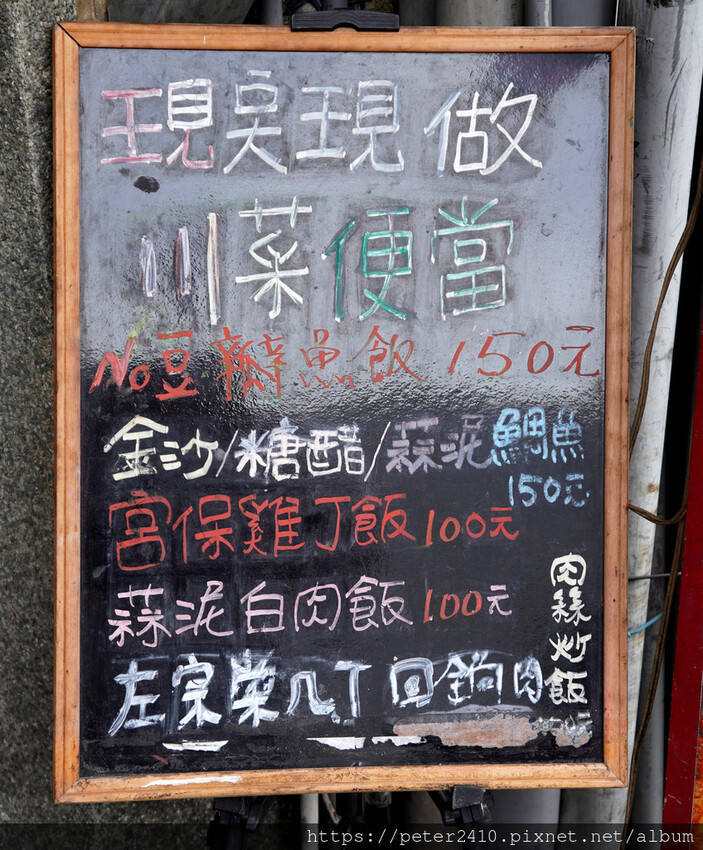 現点現做
川菜便當
No豆瓣魚飯 150元
金沙/糖醋/蒜泥鯛魚
150元
宮保雞丁飯100元
蒜泥白肉飯100元
左宗棠几丁回鍋肉
肉絲炒飯
https://peter2410.pixnet.net/album